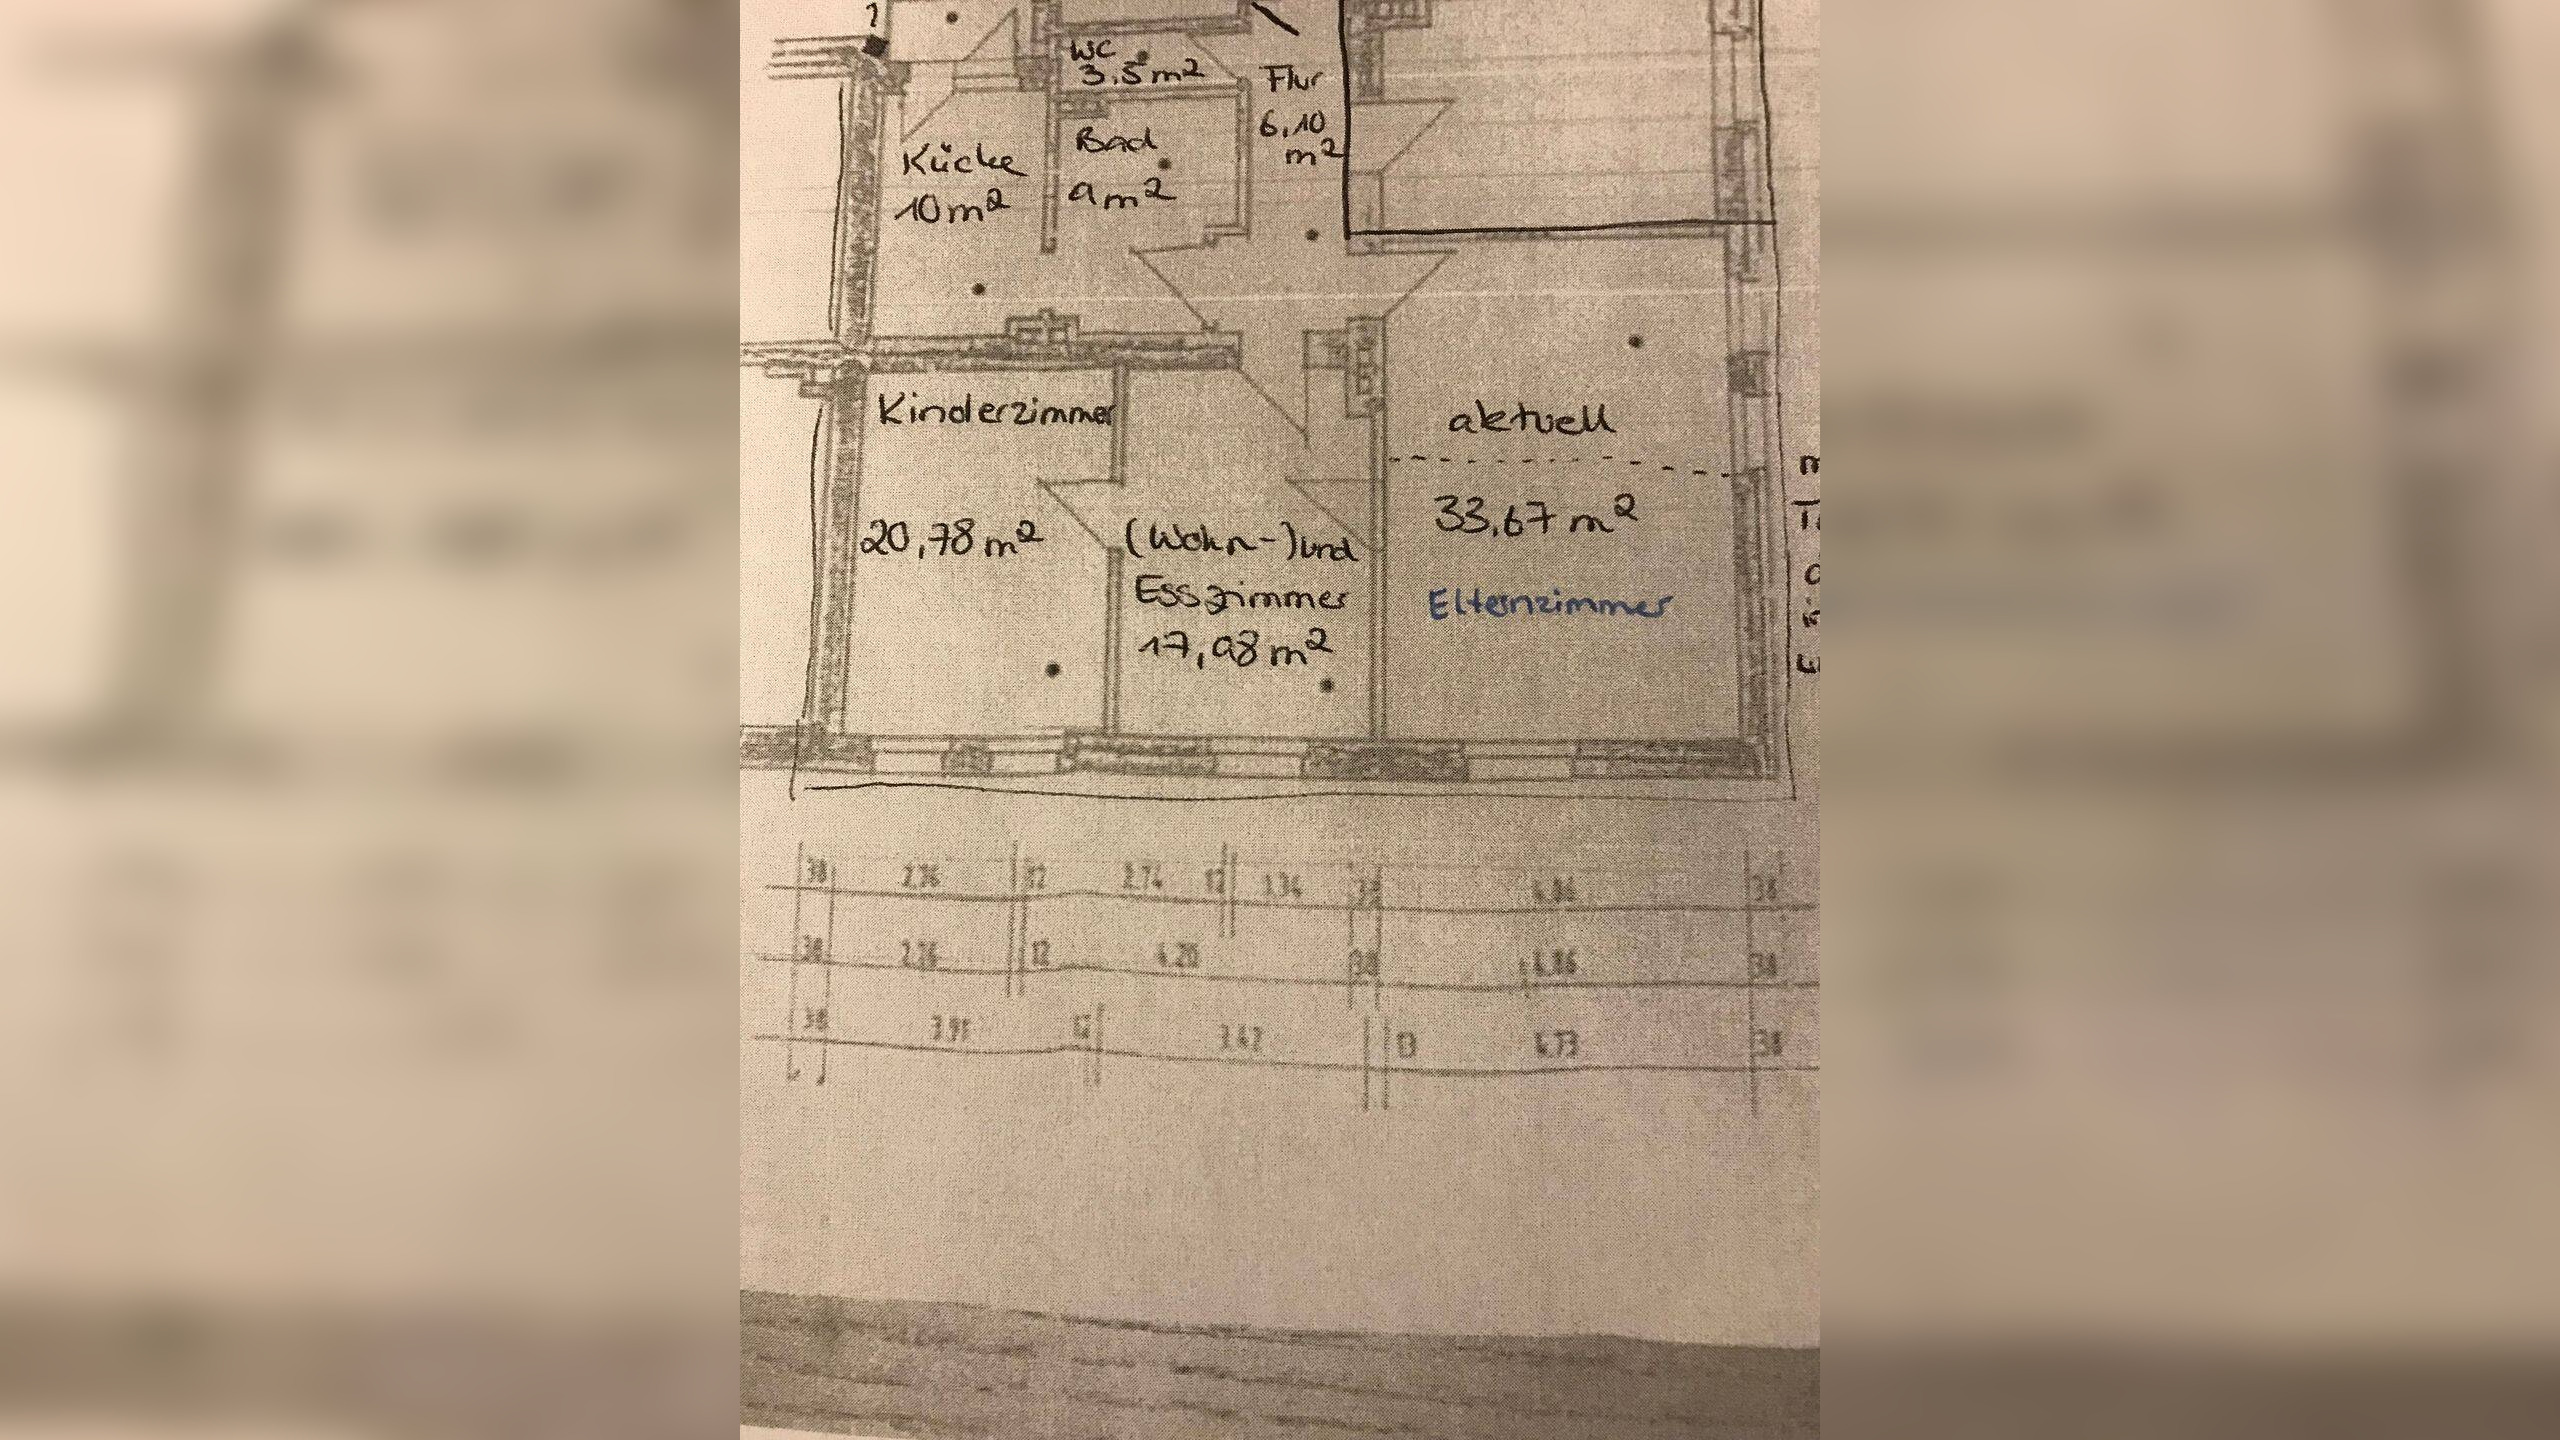 WC
3.5 m²
Flur
6,10
m²
Küche
10 m²
Bad
9 m²
Kinderzimmer
20,78 m²
(Wohn-) und
Esszimmer
17,98 m²
aktuell
33,67 m²
Elternzimmer
38 2.76 12 2.74 12 1.34 4.86 38
38 2.76 12 4.20 38 4.86 38
38 3.91 3.62 13 4.73 38